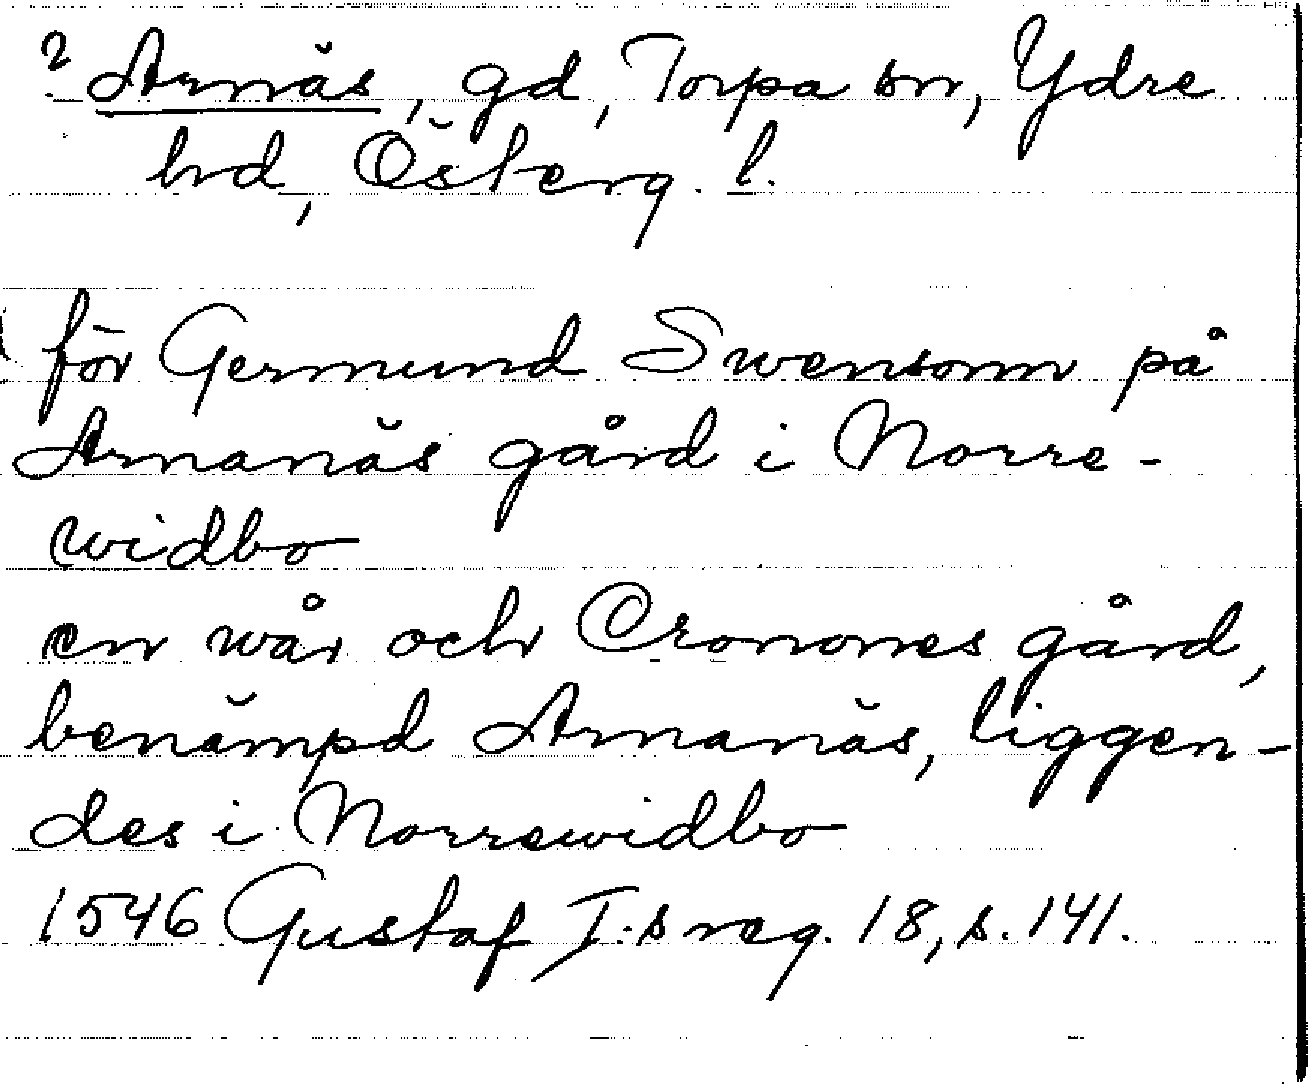 ? Arnäs, gd, Torpa sn, Ydre
hd, Österg. l.
för Germund Swensonn på
Arnanäs gård i Norre-
widbo
en wår och Cronones gård,
benämpd Arnanäs, liggen-
des i Norrewidbo
1546 Gustaf I:s reg. 18, s. 141.